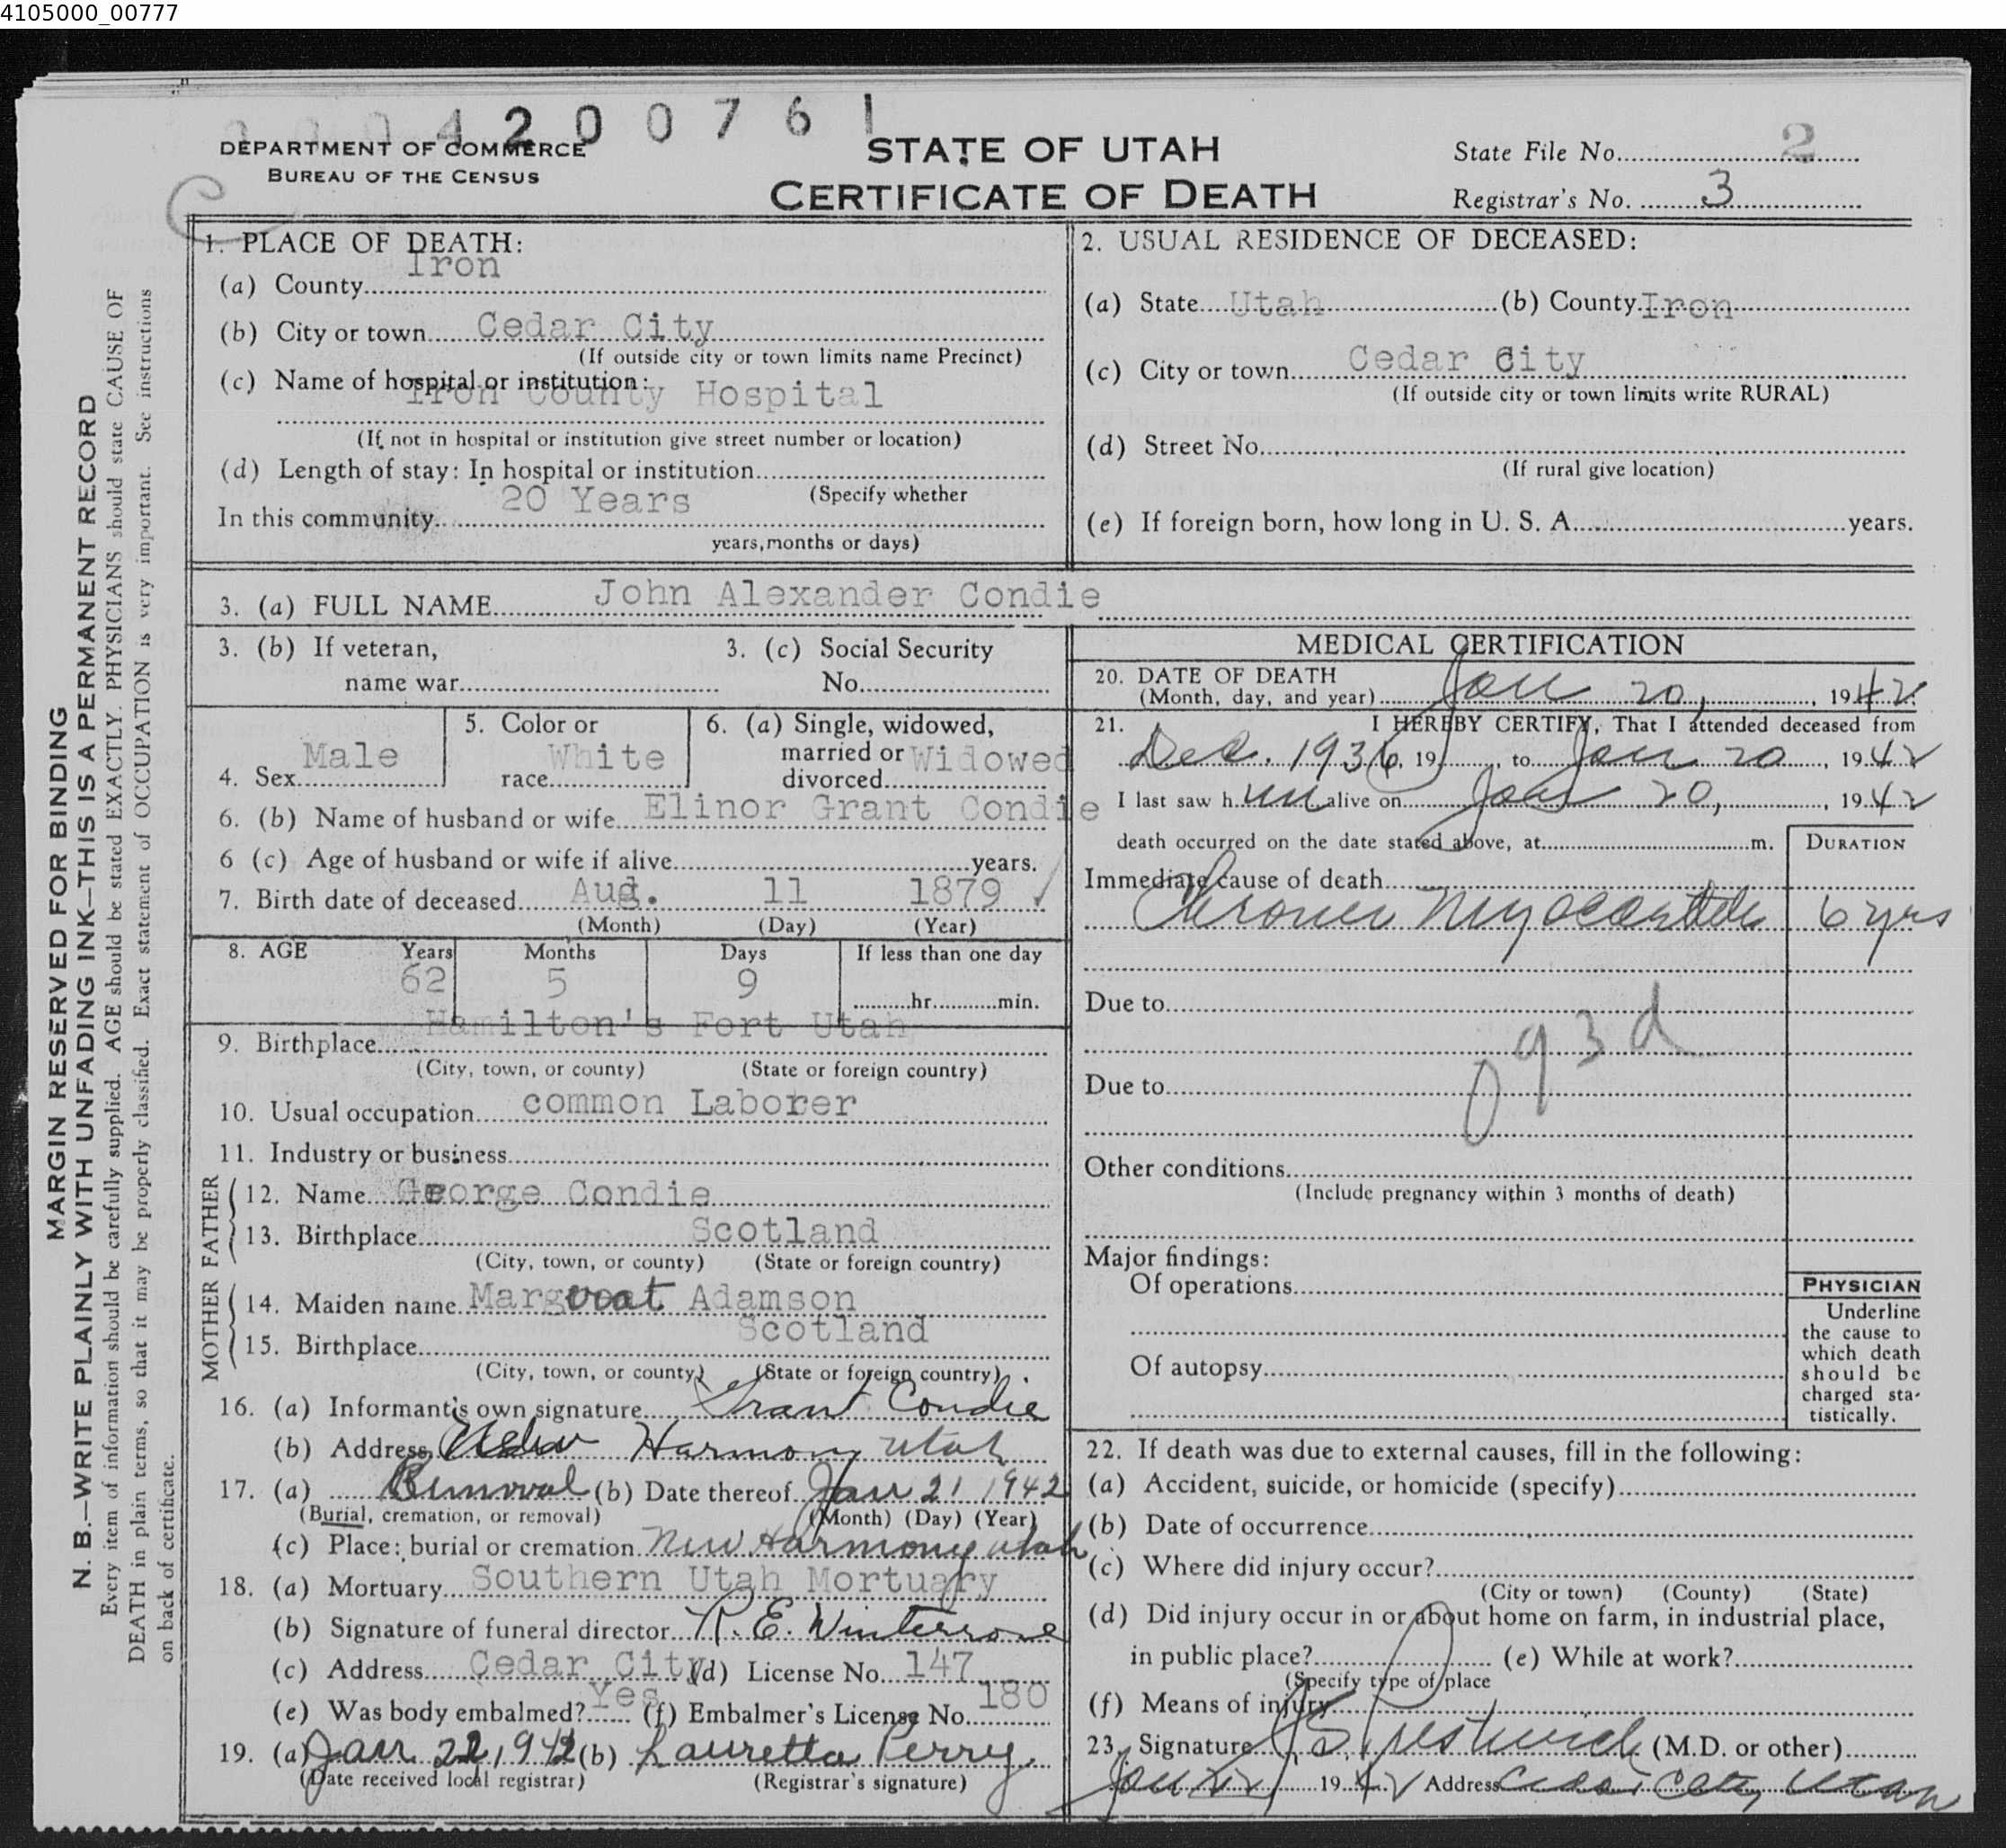 4105000_00777
4200761
DEPARTMENT OF COMMERCE
BUREAU OF THE CENSUS
STATE OF UTAH
CERTIFICATE OF DEATH
State File No. 2
Registrar's No. 3
MARGIN RESERVED FOR BINDING
N. B.—WRITE PLAINLY WITH UNFADING INK—THIS IS A PERMANENT RECORD
Every item of information should be carefully supplied. AGE should be stated EXACTLY. PHYSICIANS should state CAUSE OF
DEATH in plain terms, so that it may be properly classified. Exact statement of OCCUPATION is very important. See instructions
on back of certificate.
1. PLACE OF DEATH:
(a) County Iron
(b) City or town Cedar City
(If outside city or town limits name Precinct)
(c) Name of hospital or institution:
Iron County Hospital
(If not in hospital or institution give street number or location)
(d) Length of stay: In hospital or institution
(Specify whether
In this community 20 Years
years, months or days)
2. USUAL RESIDENCE OF DECEASED:
(a) State Utah (b) County Iron
(c) City or town Cedar City
(If outside city or town limits write RURAL)
(d) Street No.
(If rural give location)
(e) If foreign born, how long in U. S. A. years.
3. (a) FULL NAME John Alexander Condie
3. (b) If veteran,
name war
3. (c) Social Security
No.
4. Sex Male
5. Color or
race White
6. (a) Single, widowed,
married or
divorced Widowed
6. (b) Name of husband or wife Elinor Grant Condie
6 (c) Age of husband or wife if alive years.
7. Birth date of deceased Aug. 11 1879
(Month) (Day) (Year)
8. AGE Years Months Days If less than one day
62 5 9 hr. min.
9. Birthplace Hamilton's Fort Utah
(City, town, or county) (State or foreign country)
10. Usual occupation common Laborer
11. Industry or business
FATHER
12. Name George Condie
13. Birthplace Scotland
(City, town, or county) (State or foreign country)
MOTHER
14. Maiden name Margreat Adamson
15. Birthplace Scotland
(City, town, or county) (State or foreign country)
16. (a) Informant's own signature Grant Condie
(b) Address Harmony Utah
17. (a) Removal (b) Date thereof Jan 21 1942
(Burial, cremation, or removal) (Month) (Day) (Year)
(c) Place: burial or cremation New Harmony Utah
18. (a) Mortuary Southern Utah Mortuary
(b) Signature of funeral director R. E. Winterrose
(c) Address Cedar City (d) License No. 147
(e) Was body embalmed? Yes (f) Embalmer's License No. 180
19. (a) Jan 22, 1942 (b) Lauretta Perry
(Date received local registrar) (Registrar's signature)
MEDICAL CERTIFICATION
20. DATE OF DEATH
(Month, day, and year) Jan 20, 1942
21. I HEREBY CERTIFY, That I attended deceased from
Dec. 1936, 19 , to Jan 20, 1942
I last saw him alive on Jan 20, 1942
death occurred on the date stated above, at m.
DURATION
Immediate cause of death
Chronic Myocarditis 6 yrs
Due to
093d
Due to
Other conditions
(Include pregnancy within 3 months of death)
Major findings:
Of operations
Of autopsy
PHYSICIAN
Underline
the cause to
which death
should be
charged sta-
tistically.
22. If death was due to external causes, fill in the following:
(a) Accident, suicide, or homicide (specify)
(b) Date of occurrence
(c) Where did injury occur?
(City or town) (County) (State)
(d) Did injury occur in or about home on farm, in industrial place,
in public place? (e) While at work?
(Specify type of place
(f) Means of injury
23. Signature Prestwich (M.D. or other)
Jan 22, 1942 Address Cedar City, Utah